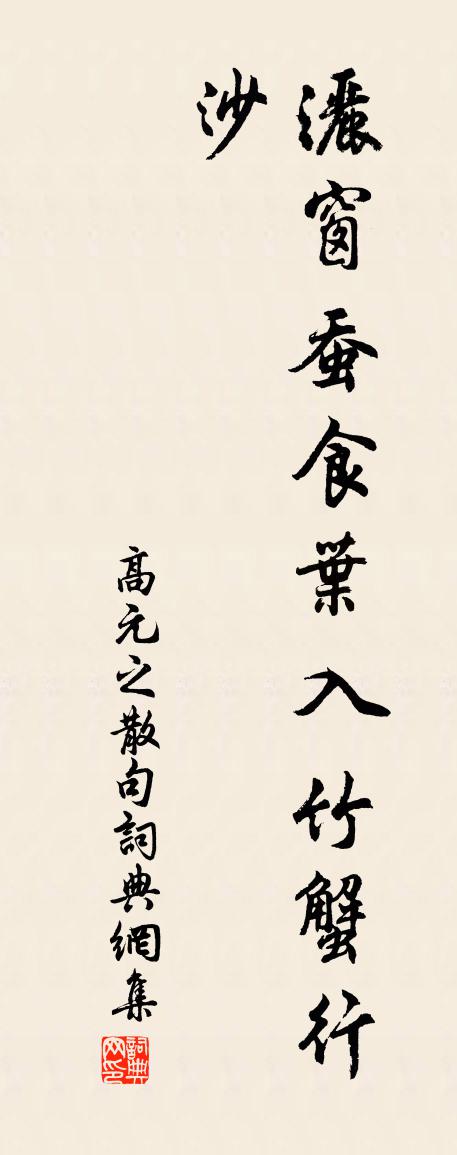 灑窗蚕食葉入竹蟹行
沙
高元之散句詞典網集
詞典网印